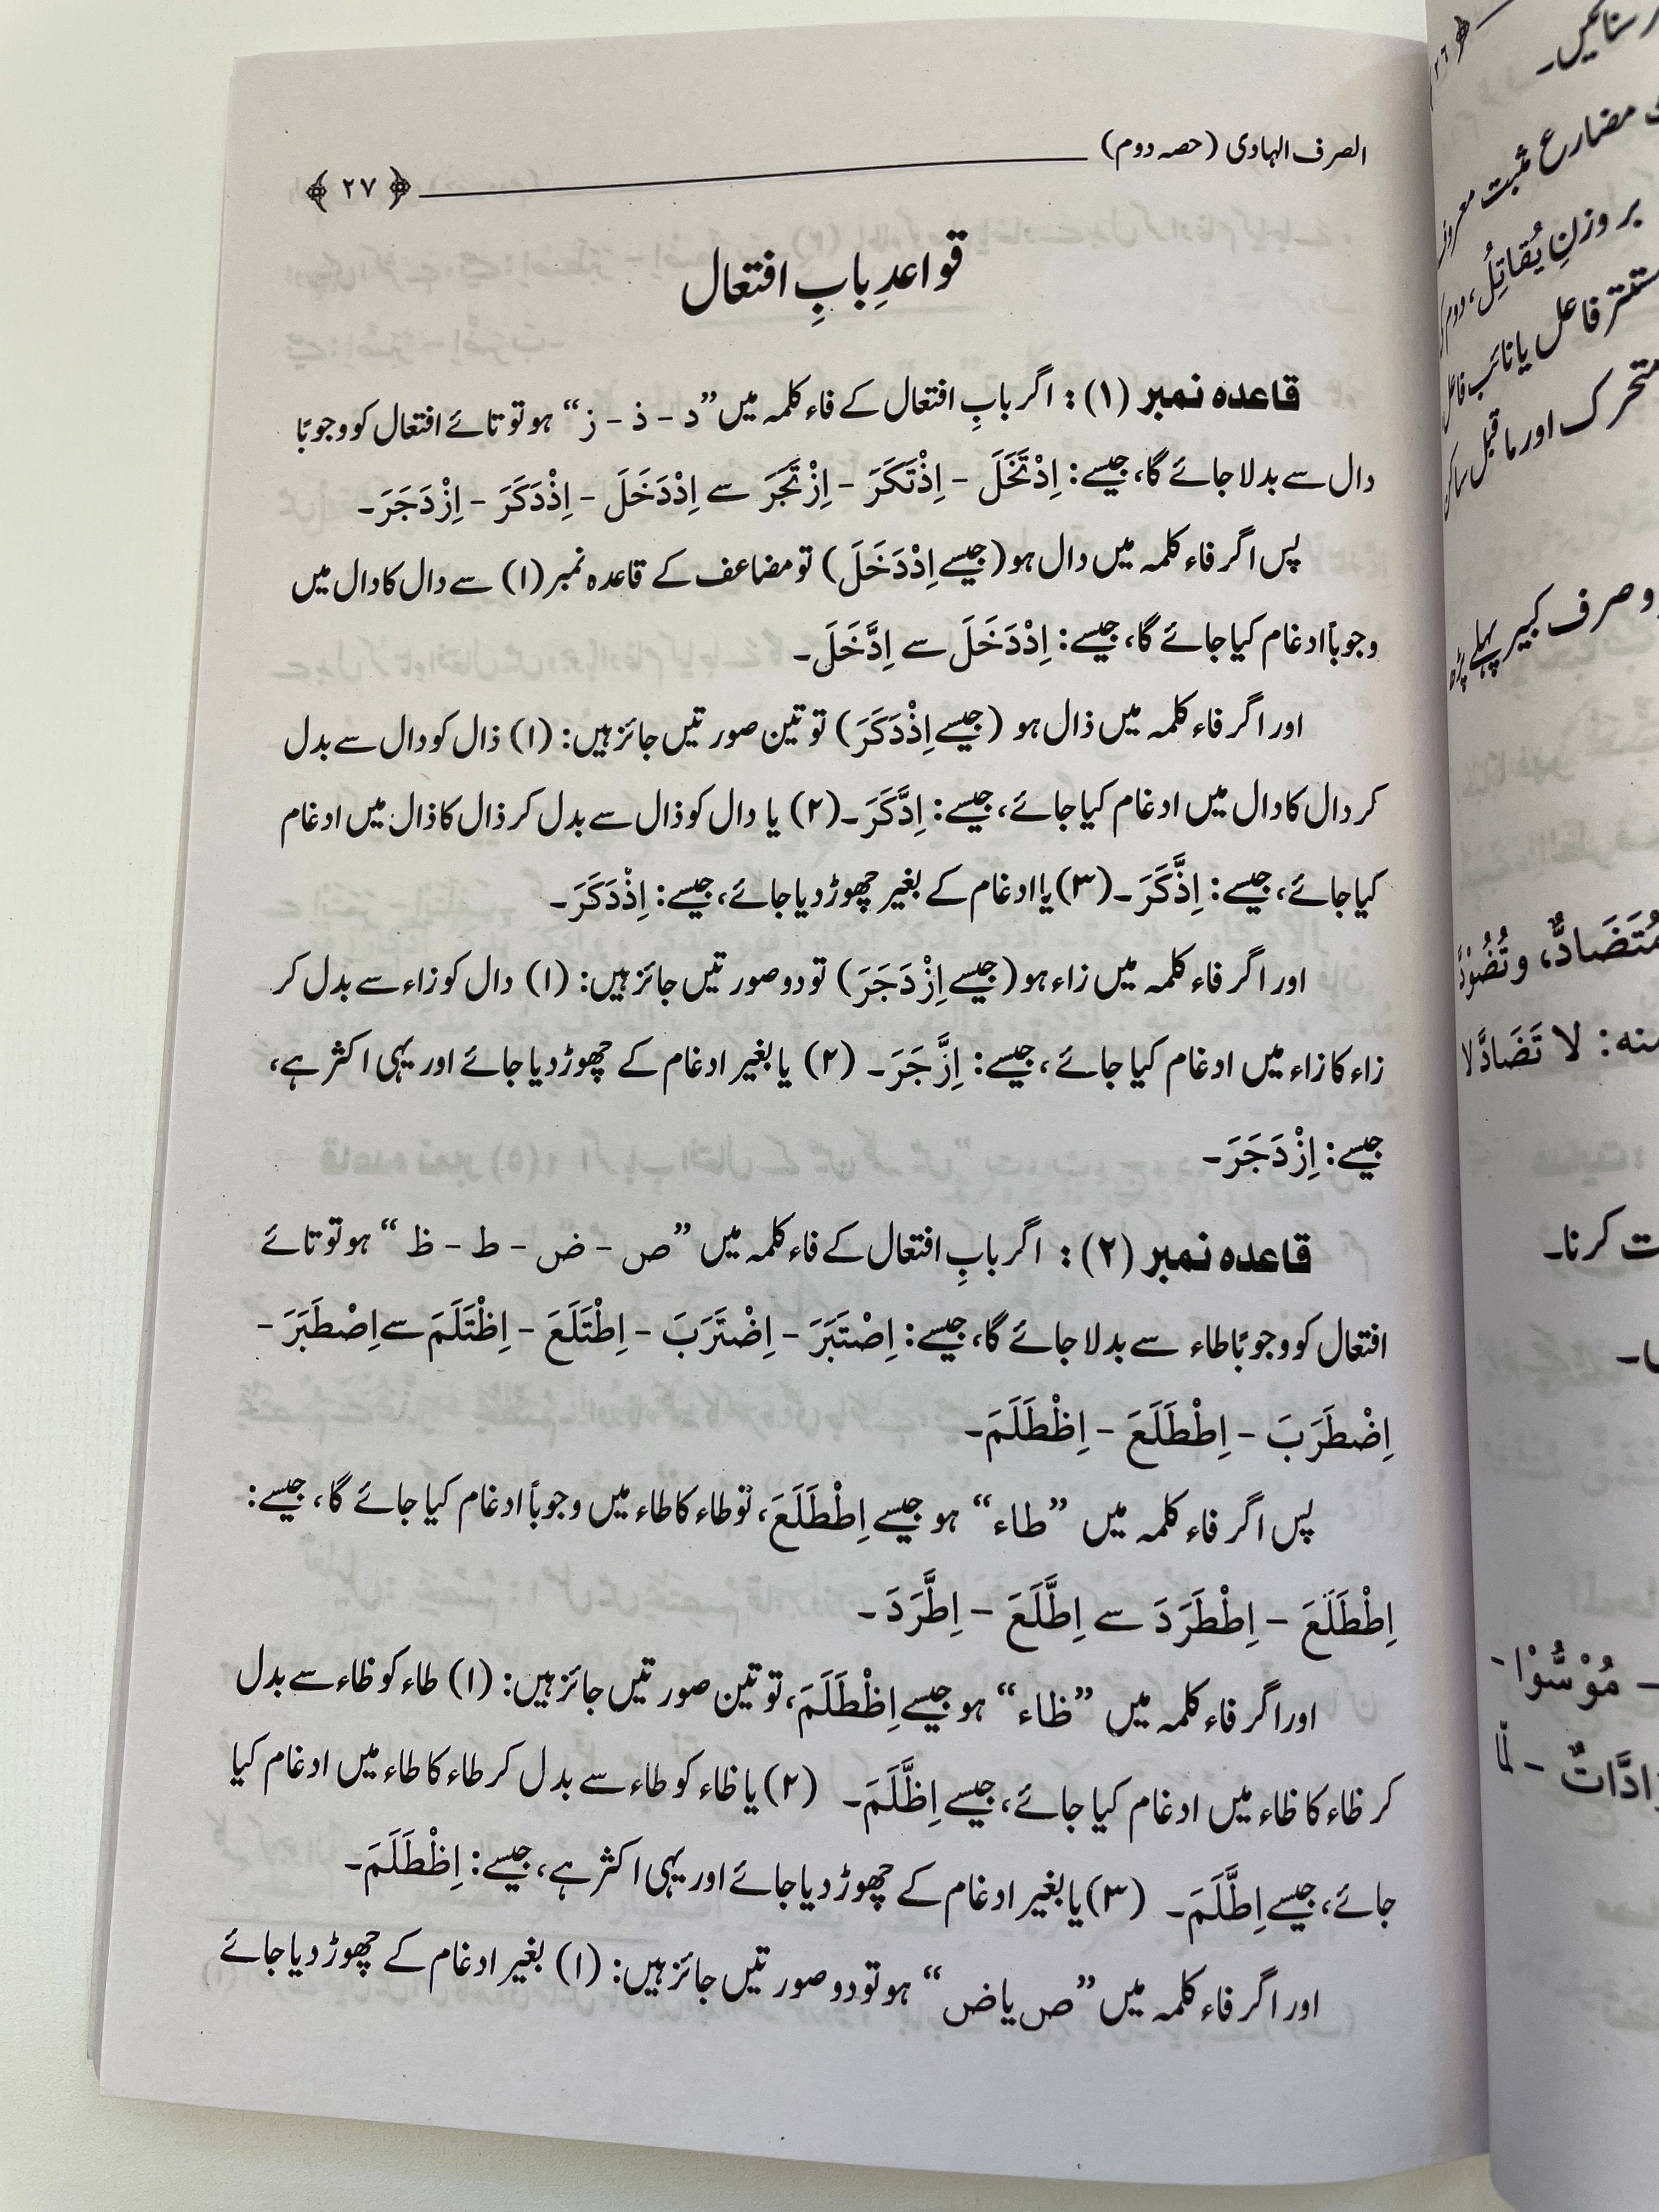 الصرف الہادی (حصہ دوم)
﴿ ۲۷ ﴾
قواعدِ بابِ افتعال
قاعدہ نمبر (۱) : اگر بابِ افتعال کے فاء کلمہ میں ”د - ذ - ز“ ہو تو تائے افتعال کو وجوبًا
دال سے بدلا جائے گا، جیسے: اِدْتَخَلَ - اِذْتَکَرَ - اِزْتَجَرَ سے اِدْدَخَلَ - اِذْدَکَرَ - اِزْدَجَرَ۔
پس اگر فاء کلمہ میں دال ہو (جیسے اِدْدَخَلَ) تو مضاعف کے قاعدہ نمبر (۱) سے دال کا دال میں
وجوباً ادغام کیا جائے گا، جیسے: اِدْدَخَلَ سے اِدَّخَلَ۔
اور اگر فاء کلمہ میں ذال ہو (جیسے اِذْدَکَرَ) تو تین صورتیں جائز ہیں: (۱) ذال کو دال سے بدل
کر دال کا دال میں ادغام کیا جائے، جیسے: اِدَّکَرَ۔ (۲) یا دال کو ذال سے بدل کر ذال کا ذال میں ادغام
کیا جائے، جیسے: اِذَّکَرَ۔ (۳) یا ادغام کے بغیر چھوڑ دیا جائے، جیسے: اِذْدَکَرَ۔
اور اگر فاء کلمہ میں زاء ہو (جیسے اِزْدَجَرَ) تو دو صورتیں جائز ہیں: (۱) دال کو زاء سے بدل کر
زاء کا زاء میں ادغام کیا جائے، جیسے: اِزَّجَرَ۔ (۲) یا بغیر ادغام کے چھوڑ دیا جائے اور یہی اکثر ہے،
جیسے: اِزْدَجَرَ۔
قاعدہ نمبر (۲) : اگر بابِ افتعال کے فاء کلمہ میں ”ص - ض - ط - ظ“ ہو تو تائے
افتعال کو وجوبًا طاء سے بدلا جائے گا، جیسے: اِصْتَبَرَ - اِضْتَرَبَ - اِطْتَلَعَ - اِظْتَلَمَ سے اِصْطَبَرَ -
اِضْطَرَبَ - اِطْطَلَعَ - اِظْطَلَمَ۔
پس اگر فاء کلمہ میں ”طاء“ ہو جیسے اِطْطَلَعَ، تو طاء کا طاء میں وجوباً ادغام کیا جائے گا، جیسے:
اِطْطَلَعَ - اِطْطَرَدَ سے اِطَّلَعَ - اِطَّرَدَ۔
اور اگر فاء کلمہ میں ”ظاء“ ہو جیسے اِظْطَلَمَ، تو تین صورتیں جائز ہیں: (۱) طاء کو ظاء سے بدل
کر ظاء کا ظاء میں ادغام کیا جائے، جیسے اِظَّلَمَ۔ (۲) یا ظاء کو طاء سے بدل کر طاء کا طاء میں ادغام کیا
جائے، جیسے اِطَّلَمَ۔ (۳) یا بغیر ادغام کے چھوڑ دیا جائے اور یہی اکثر ہے، جیسے: اِظْطَلَمَ۔
اور اگر فاء کلمہ میں ”ص یا ض“ ہو تو دو صورتیں جائز ہیں: (۱) بغیر ادغام کے چھوڑ دیا جائے
مضارع مثبت معروف
بروزنِ یُقَاتِلُ، دوم
فاعل یا نائب فاعل
متحرک اور ماقبل ساکن
و صرف کبیر پہلے
مُتَضَادٌّ، و
لا تَضَادَّ لا
ت کرنا۔
مُوْسُّوْا -
- لَمَّا